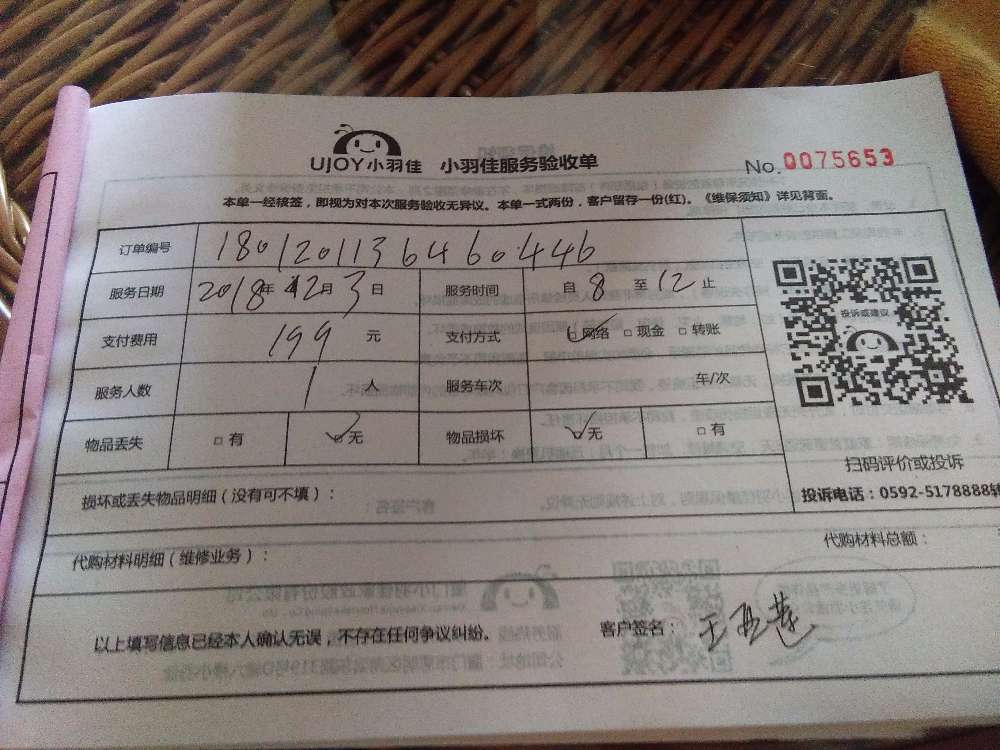 UJOY小羽佳 小羽佳服务验收单 No.0075653
本单一经核签，即视为对本次服务验收无异议。本单一式两份，客户留存一份(红)。《维保须知》详见背面。
订单编号 1801201136460446
服务日期 2018年12月3日 服务时间 自8至12止
支付费用 199元 支付方式 □网络 □现金 □转账
服务人数 1人 服务车次 车/次
物品丢失 □有 □无 物品损坏 □无 □有
投诉或建议
扫码评价或投诉
投诉电话：0592-5178888转
损坏或丢失物品明细（没有可不填）：
代购材料明细（维修业务）： 代购材料总额：
以上填写信息已经本人确认无误，不存在任何争议纠纷。 客户签名：王亚莲